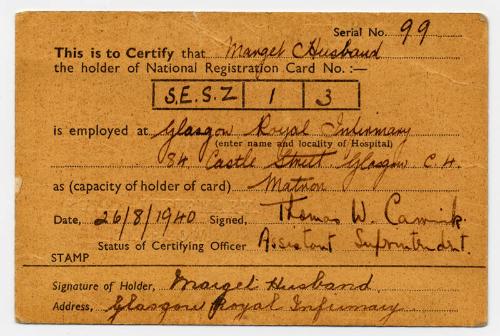 Serial No. 99
This is to Certify that Marget Husband
the holder of National Registration Card No. :—
S.E.S.Z 1 3
is employed at Glasgow Royal Infirmary
(enter name and locality of Hospital)
84 Castle Street Glasgow C.4.
as (capacity of holder of card) Matron
Date, 26/8/1940 Signed, Thomas W.
Status of Certifying Officer Assistant Suprintendent.
STAMP
Signature of Holder, Marget Husband
Address, Glasgow Royal Infirmary